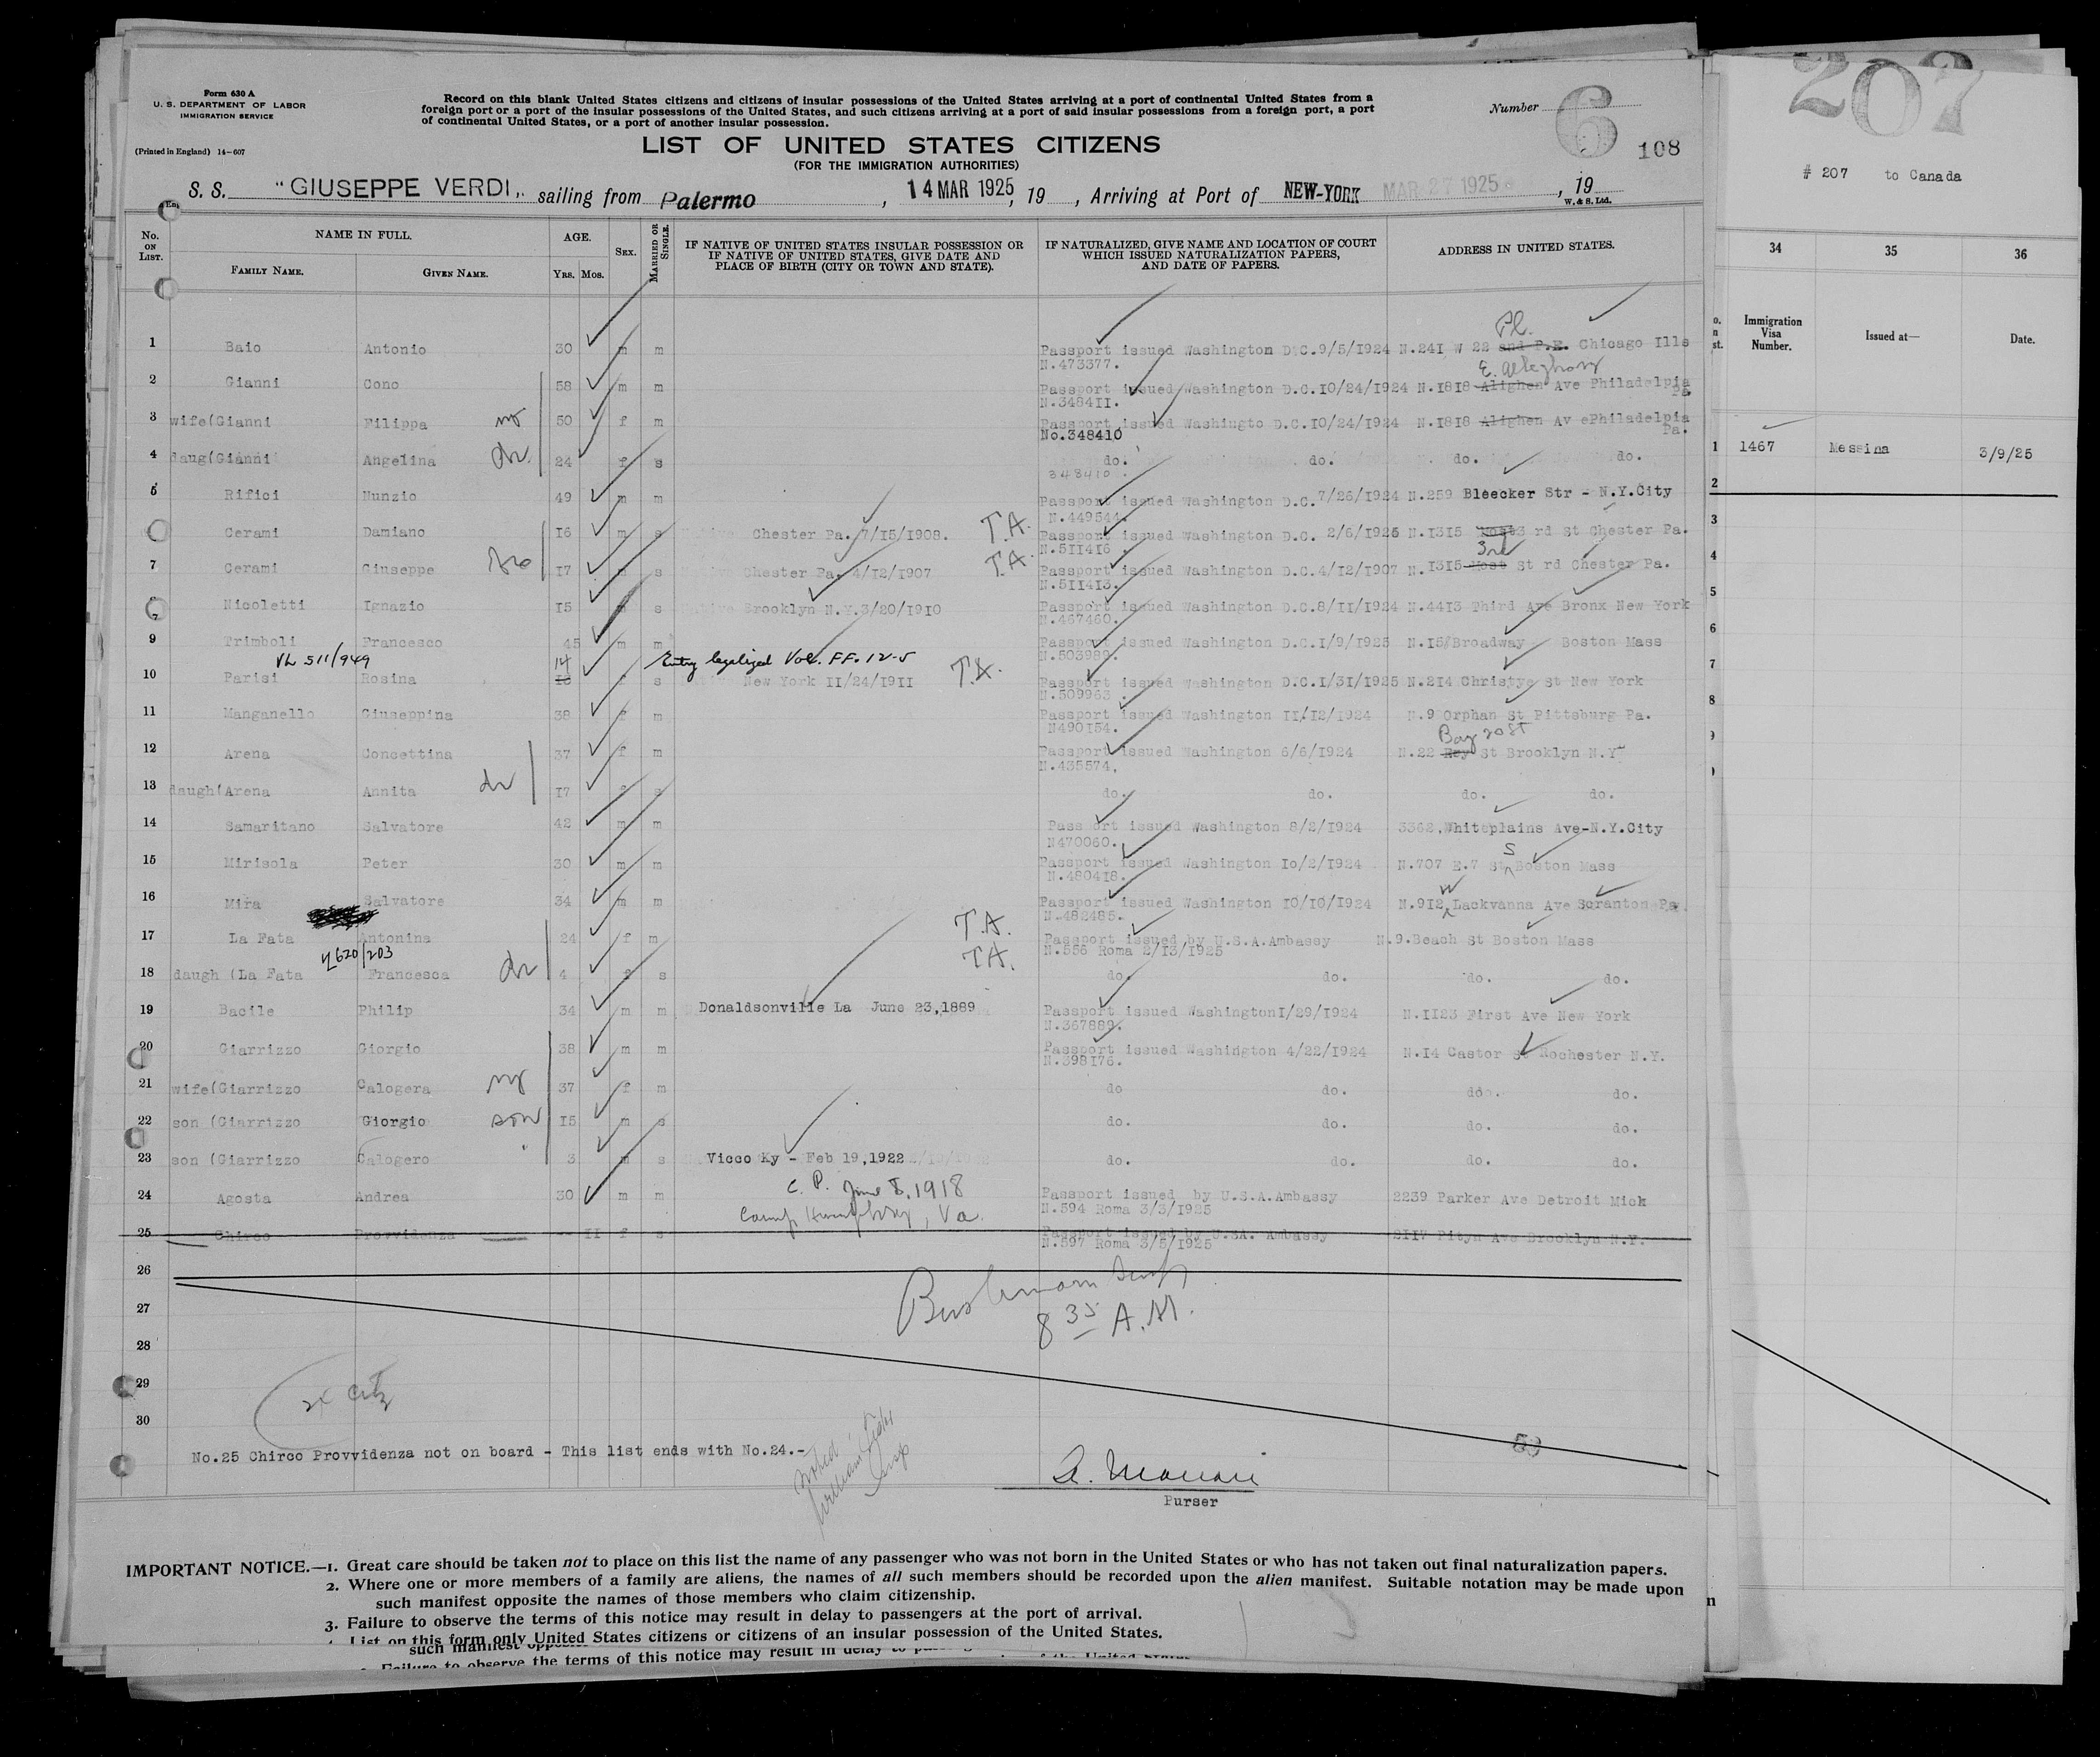 Form 630 A
U. S. DEPARTMENT OF LABOR
IMMIGRATION SERVICE
(Printed in England) 14-607
Record on this blank United States citizens and citizens of insular possessions of the United States arriving at a port of continental United States from a
foreign port or a port of the insular possessions of the United States, and such citizens arriving at a port of said insular possessions from a foreign port, a port
of continental United States, or a port of another insular possession.
Number 6
108
LIST OF UNITED STATES CITIZENS
(FOR THE IMMIGRATION AUTHORITIES)
S. S. "GIUSEPPE VERDI,, sailing from Palermo, 14 MAR 1925, 19 , Arriving at Port of NEW-YORK MAR 27 1925, 19
W. & S. Ltd.
No. ON LIST. NAME IN FULL. AGE. SEX. MARRIED OR SINGLE. IF NATIVE OF UNITED STATES INSULAR POSSESSION OR IF NATIVE OF UNITED STATES, GIVE DATE AND PLACE OF BIRTH (CITY OR TOWN AND STATE). IF NATURALIZED, GIVE NAME AND LOCATION OF COURT WHICH ISSUED NATURALIZATION PAPERS, AND DATE OF PAPERS. ADDRESS IN UNITED STATES.
FAMILY NAME. GIVEN NAME. YRS. MOS.
Pl.
1 Baio Antonio 30 m m Passport issued Washington D.C.9/5/1924 N.241 W 22 and P.E. Chicago Ills
N.473377.
E. Allegheny
2 Gianni Cono 58 m m Passport issued Washington D.C.10/24/1924 N.1818 Alighen Ave Philadelpia Pa.
N.348411.
3 wife(Gianni Filippa 50 f m Passport issued Washingto D.C.10/24/1924 N.1818 Alighen Av ePhiladelpia Pa.
No.348410
4 daug(Gianni Angelina 24 f s do. do. do. do.
348410.
5 Rifici Nunzio 49 m m Passport issued Washington D.C.7/26/1924 N.259 Bleecker Str - N.Y.City
N.449544.
Cerami Damiano 16 m s Native Chester Pa. 7/15/1908. T.A. Passport issued Washington D.C. 2/6/1925 N.1315 3 rd St Chester Pa.
N.511416.
3rd
7 Cerami Giuseppe 17 m s Native Chester Pa. 4/12/1907 T.A. Passport issued Washington D.C.4/12/1907 N.1315 St rd Chester Pa.
N.511413.
Nicoletti Ignazio 15 m s Native Brooklyn N.Y.3/20/1910 Passport issued Washington D.C.8/11/1924 N.4413 Third Ave Bronx New York
N.467460.
9 Trimboli Francesco 45 m m Passport issued Washington D.C.1/9/1925 N.15 Broadway Boston Mass
N.503989.
VL 511/949 14 Entry legalized Vol. FF. 12-5
10 Parisi Rosina f s Native New York 11/24/1911 T.A. Passport issued Washington D.C.1/31/1925 N.214 Christye St New York
N.509963.
11 Manganello Giuseppina 38 f m Passport issued Washington 11/12/1924 N.9 Orphan St Pittsburg Pa.
N490154.
Bay 20 St
12 Arena Concettina 37 f m Passport issued Washington 6/6/1924 N.22 Rey St Brooklyn N.Y
N.435574.
13 daugh(Arena Annita 17 f s do. do. do. do.
14 Samaritano Salvatore 42 m m Pass ort issued Washington 8/2/1924 3362,Whiteplains Ave-N.Y.City
N470060.
S
15 Mirisola Peter 30 m m Passport issued Washington 10/2/1924 N.707 E.7 St Boston Mass
N.480418.
W
16 Mira Salvatore 34 m m Passport issued Washington 10/10/1924 N.912 Lackvanna Ave Scranton Pa.
N.482485.
17 La Fata Antonina 24 f m T.A. Passport issued by U.S.A.Ambassy N.9.Beach St Boston Mass
N.556 Roma 2/13/1925
620/203
18 daugh (La Fata Francesca 4 f s T.A. do. do. do. do.
19 Bacile Philip 34 m m Donaldsonville La June 23,1889 Passport issued Washington1/29/1924 N.1123 First Ave New York
N.367889.
20 Giarrizzo Giorgio 38 m m Passport issued Washington 4/22/1924 N.14 Castor st Rochester N.Y.
N.398176.
21 wife(Giarrizzo Calogera 37 f m do do. do. do.
22 son (Giarrizzo Giorgio son 15 m s do. do. do. do.
23 son (Giarrizzo Calogero 3 m s Vicco Ky - Feb 19,1922 do. do. do. do.
24 Agosta Andrea 30 m m C. P. June 8, 1918 Passport issued by U.S.A.Ambassy 2239 Parker Ave Detroit Mick
Camp Humphrey, Va. N.594 Roma 3/3/1925
25 Chirco Provvidenza -- 11 f s Passport issued by U.SA. Ambassy 2117 Pityn Ave Brooklyn N.Y.
N.597 Roma 3/5/1925
26
27
28
29
30
8 35 A.M.
No.25 Chirco Provvidenza not on board - This list ends with No.24.-
Purser
IMPORTANT NOTICE.—1. Great care should be taken not to place on this list the name of any passenger who was not born in the United States or who has not taken out final naturalization papers.
2. Where one or more members of a family are aliens, the names of all such members should be recorded upon the alien manifest. Suitable notation may be made upon
such manifest opposite the names of those members who claim citizenship.
3. Failure to observe the terms of this notice may result in delay to passengers at the port of arrival.
List on this form only United States citizens or citizens of an insular possession of the United States.
such manifest
Failure to observe the terms of this notice may result in delay to
207
# 207 to Canada
34 35 36
Immigration Visa Number. Issued at— Date.
1 1467 Messina 3/9/25
2
3
4
5
6
7
8
9